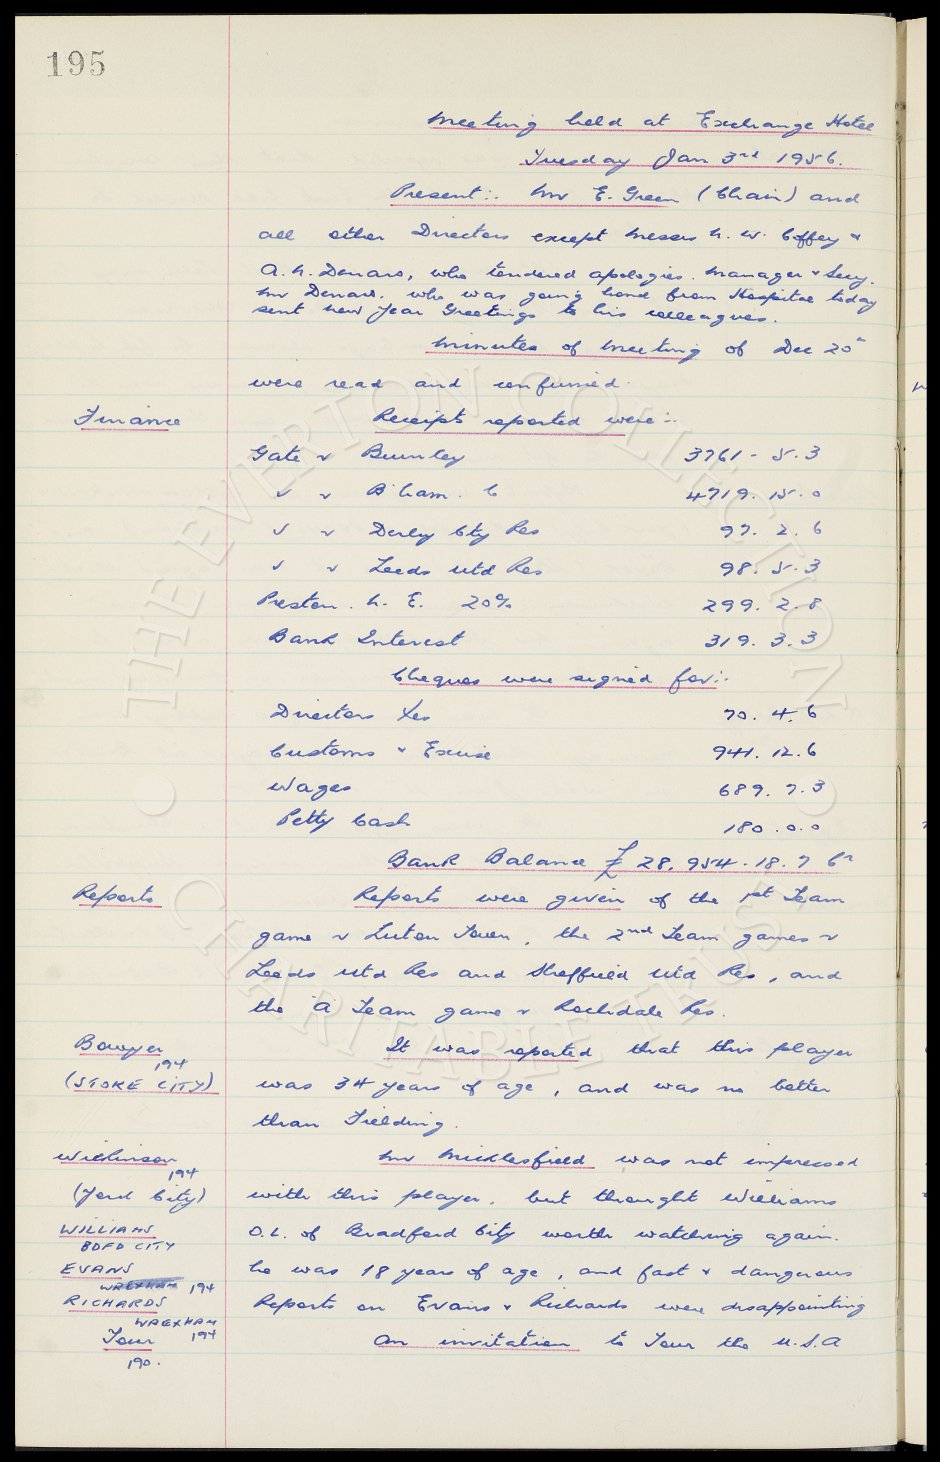 195
Meeting held at Exchange Hotel
Tuesday Jan 3rd 1956.
Present:- Mr E. Green (Chair) and
all other Directors except Messrs N. W. Coffey &
A. N. Denaro, who tendered apologies. Manager & Secy.
Mr Denaro, who was going home from Hospital today
sent New Year Greetings to his colleagues.
Minutes of Meeting of Dec 20"
were read and confirmed.
Finance Receipts reported were:-
Gate v Burnley 3761 - 5. 3
" v B'ham. C 4719. 15. 0
" v Derby Cty Res 97. 2. 6
" v Leeds Utd Res 98. 5. 3
Preston. N. E. 20% 299. 2. 8
Bank Interest 319. 3. 3
Cheques were signed for:-
Directors Xes 70. 4. 6
Customs & Excise 941. 12. 6
Wages 689. 7. 3
Petty Cash 180. 0. 0
Bank Balance £ 28,954. 18. 7 Cr
Reports Reports were given of the 1st Team
game v Luton Town, the 2nd Team games v
Leeds Utd Res and Sheffield Utd Res, and
the "A" Team game v Rochdale Res.
Bowyer It was reported that this player
194
(STOKE CITY) was 34 years of age, and was no better
than Fielding.
Wilkinson Mr Micklesfield was not impressed
194
(York City) with this player, but thought Williams
WILLIAMS O.L. of Bradford City worth watching again.
BDFD CITY
EVANS he was 18 years of age, and fast & dangerous
WREXHAM 194
RICHARDS Reports on Evans & Richards were disappointing
WREXHAM
Tour 194 An invitation to Tour the U.S.A
190.
THE EVERTON COLLECTION
CHARITABLE TRUST